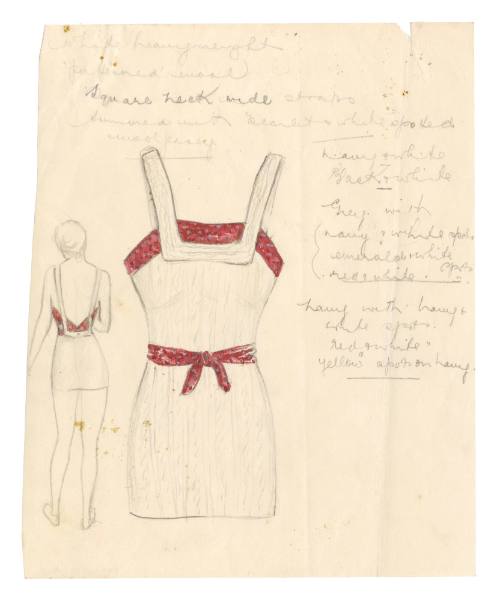 White heavyweight
patterned wool
Square neck wide straps
trimmed with scarlet & white spotted
navy & white
Black & white
Grey with
navy & white spots
emerald & white
red & white spots
navy with navy &
white spots.
red & white "
yellow spots on navy.